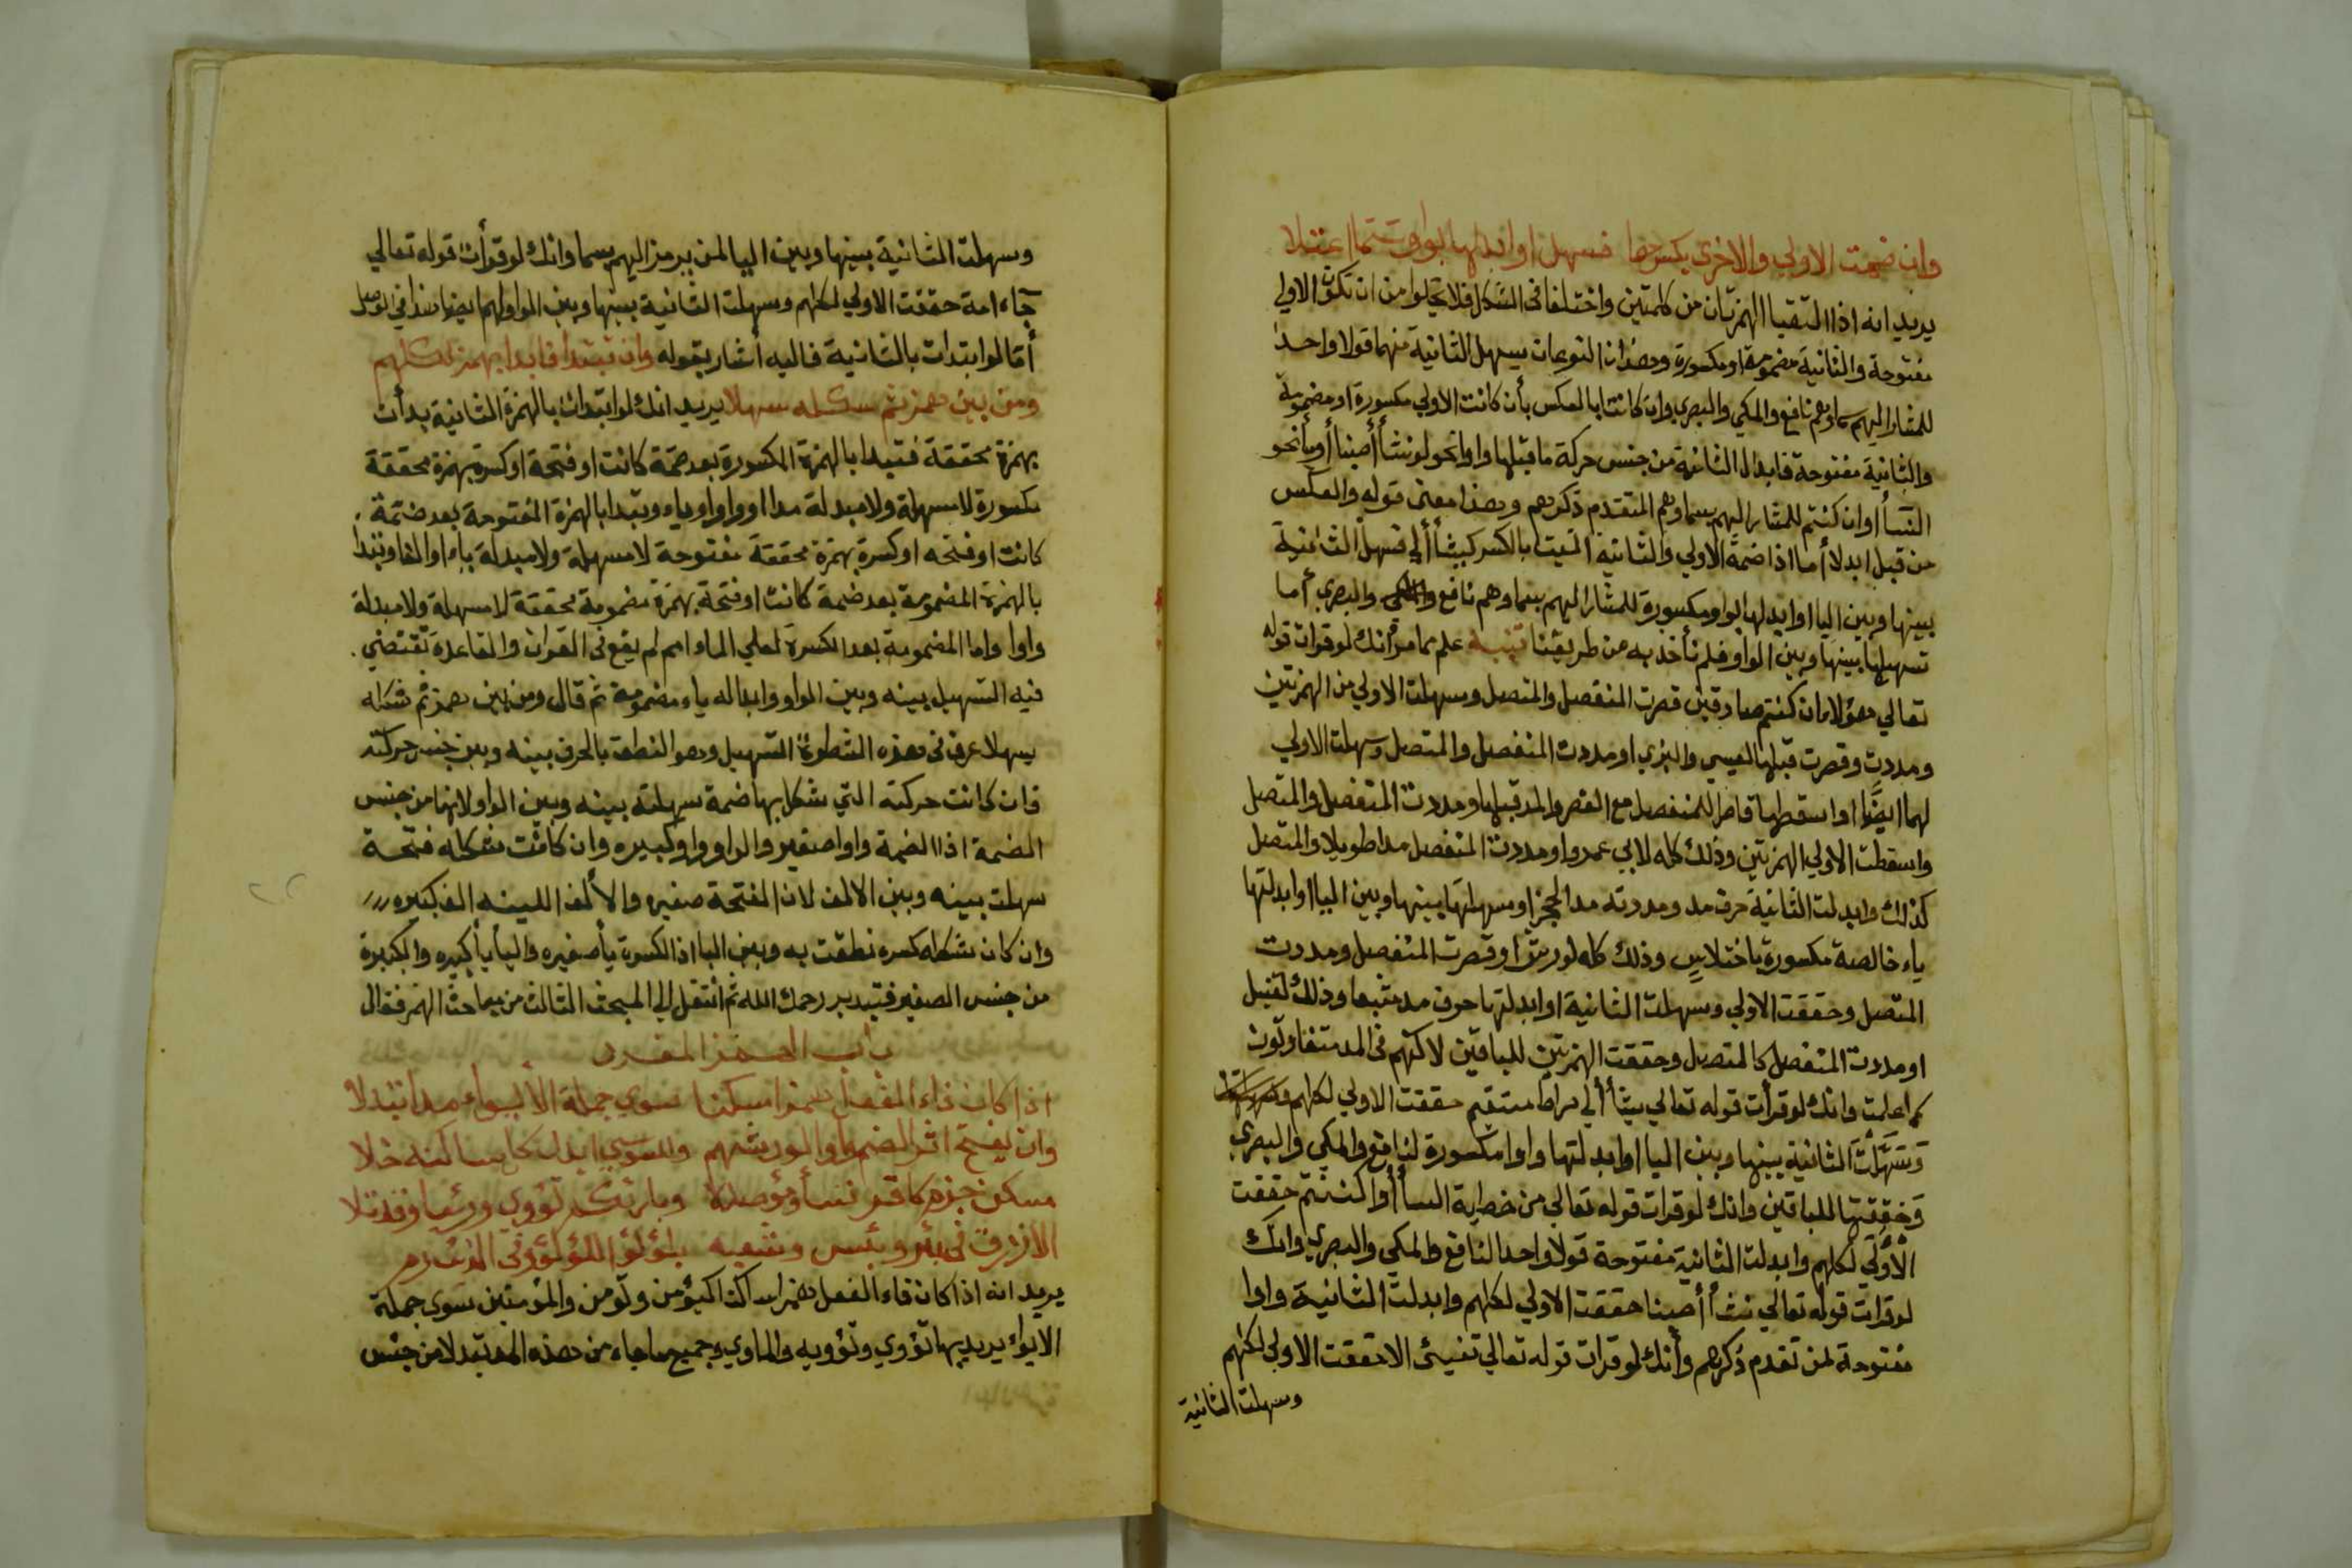 وان ضمت الاولي والاخري بكسرها فسهلن او ابدلها بواو
يريد انه اذا التقيا الهمزتان من كلمتين واختلفا في الشكل فلا يخلوا من ان تكون الاولي
مفتوحة والثانية مضمومة او مكسورة وهذان النوعان يسهل الثانية منهما قولا واحدا
للمشار اليهم سما وهم نافع والمكي والبصري وان كانتا بالعكس بأن كانت الاولي مكسورة او مضمومة
والثانية مفتوحة فابدال الثانية من جنس حركة ما قبلها واوا نحو لو نشأ أصبنا أو يأ نحو
النسأ او ان كنتم للمشار اليهم بسما وهم المتقدم ذكرهم وهذا معني قوله والعكس
من قبل ابدلا أما اذا ضمة الاولي والثانية اتيت بالكسر كيشأ ألي فسهل الثانية
بينها وبين اليا او ابدلها بواو مكسورة للمشار اليهم بسما وهم نافع والمكي والبصري أما
تسهيلها بينها وبين الواو فلم نأخذ به من طريقنا تنبيه علم مما مر أنك لو قرات قوله
تعالي هؤلاء ان كنتم صادقين قصرت المنفصل والمتصل وسهلت الاولي من الهمزتين
ومددت وقصرت قبلها لعيسي والبزي او مددت المنفصل والمتصل وسهلت الاولي
لهما ايضا او اسقطها قاصرا للمنفصل مع القصر والمد قبلها ومددت المنفصل والمتصل
واسقطت الاولي الهمزتين وذلك كله لابي عمرو او مددت المنفصل مدا طويلا والمتصل
كذلك وابدلت الثانية حرف مد ومددته مد الحجز او سهلتها بينها وبين اليا او ابدلتها
ياء خالصة مكسورة باختلاس وذلك كله لورش او قصرت المنفصل ومددت
المتصل وحققت الاولي وسهلت الثانية او ابدلتها حرف مد مشبعا وذلك لقنبل
او مددت المنفصل كالمتصل وحققت الهمزتين للباقين لاكنهم في المد متفاوتون
كما علمت وانك لو قرأت قوله تعالي يشأ ألي صراط مستقيم حققت الاولي لكلهم
وسهلت الثانية بينها وبين اليا او ابدلتها واوا مكسورة لنافع والمكي والبصري
وحققتها للباقين وانك لو قرات قوله تعالي من خطبة النسأ أو اكننتم حققت
الأولي لكلهم وابدلت الثانية مفتوحة قولا واحدا لنافع والمكي والبصري وانك
لو قرات قوله تعالي نشأ أصبنا حققت الاولي لكلهم وابدلت الثانية واوا
مفتوحة لمن تقدم ذكرهم وأنك لو قرات قوله تعالي تفيئ الا حققت الاولي لكلهم
وسهلت الثانية
وسهلت الثانية بينها وبين اليا لمن يرمز اليهم بسما وانك لو قرأت قوله تعالي
جاء امة حققت الاولي لكلهم وسهلت الثانية بينها وبين الواو لهم ايضا هذا في الوصل
أما لو ابتدات بالثانية فاليه أشار بقوله وان تبتدا فابدا بهمز لكلهم
ومن بين همز ثم شكله سهلا يريد انك لو ابتدات بالهمزة الثانية بدأت
بهمزة محققة فتبدا بالهمزة المكسورة بعد ضمة كانت او فتحة او كسرة بهمزة محققة
مكسورة لا مسهلة ولا مبدلة مدا او واوا او ياء وتبدا بالهمزة المفتوحة بعد ضمة
كانت او فتحه او كسرة بهمزة محققة مفتوحة لا مسهلة ولا مبدلة ياء او الفا وتبدا
بالهمزة المضمومة بعد ضمة كانت او فتحة بهمزة مضمومة محققة لا مسهلة ولا مبدلة
واوا واما المضمومة بعد الكسرة لعلي الماء امم لم يقع في القران والقاعدة تقتضي
فيه التسهيل بينه وبين الواو وابداله ياء مضمومة ثم قال ومن بين همز ثم شكله
يسهلا عرف في هذه الشطرة التسهيل وهو النطق بالحرف بينه وبين جنس حركته
فان كانت حركته التي شكل بها ضمة سهلته بينه وبين الواو لانها من جنس
الضمة اذ الضمة واوا صغيره والواو واو كبيره وان كانت شكله فتحة
سهلت بينه وبين الالف لان الفتحة صغيره والألف اللينه الف كبيره
وان كان شكله كسره نطقت به وبين اليا اذ الكسرة يأ صغيره واليأ يأ كبيره والكبيرة
من جنس الصغير فتدبر رحمك الله ثم انتقل الي المبحث الثالث من مباحث الهمز فقال
باب الهمز المفرد
اذا كان فاء الفعل همزا مسكنا سوي جملة الأيواء مدا تبدلا
وان يفتح اثر الضم واوا لورشهم وللسوسي ابدل كل ساكنه خلا
سكون جزم كاقر ننسأ ومؤصدة وبارئكم تؤوي ورئيا وقد تلا
الأزرق في بئر وبئس وشعبه بلؤلؤ اللؤلؤ وفي الذئب
يريد انه اذا كان فاء الفعل همزا ساكنا كيؤمن وتؤمن والمؤمنين سوي جملة
الايواء يريد بها تؤوي وتؤويه والماوي وجميع ما جاء من هذه المد تبدلا من جنس